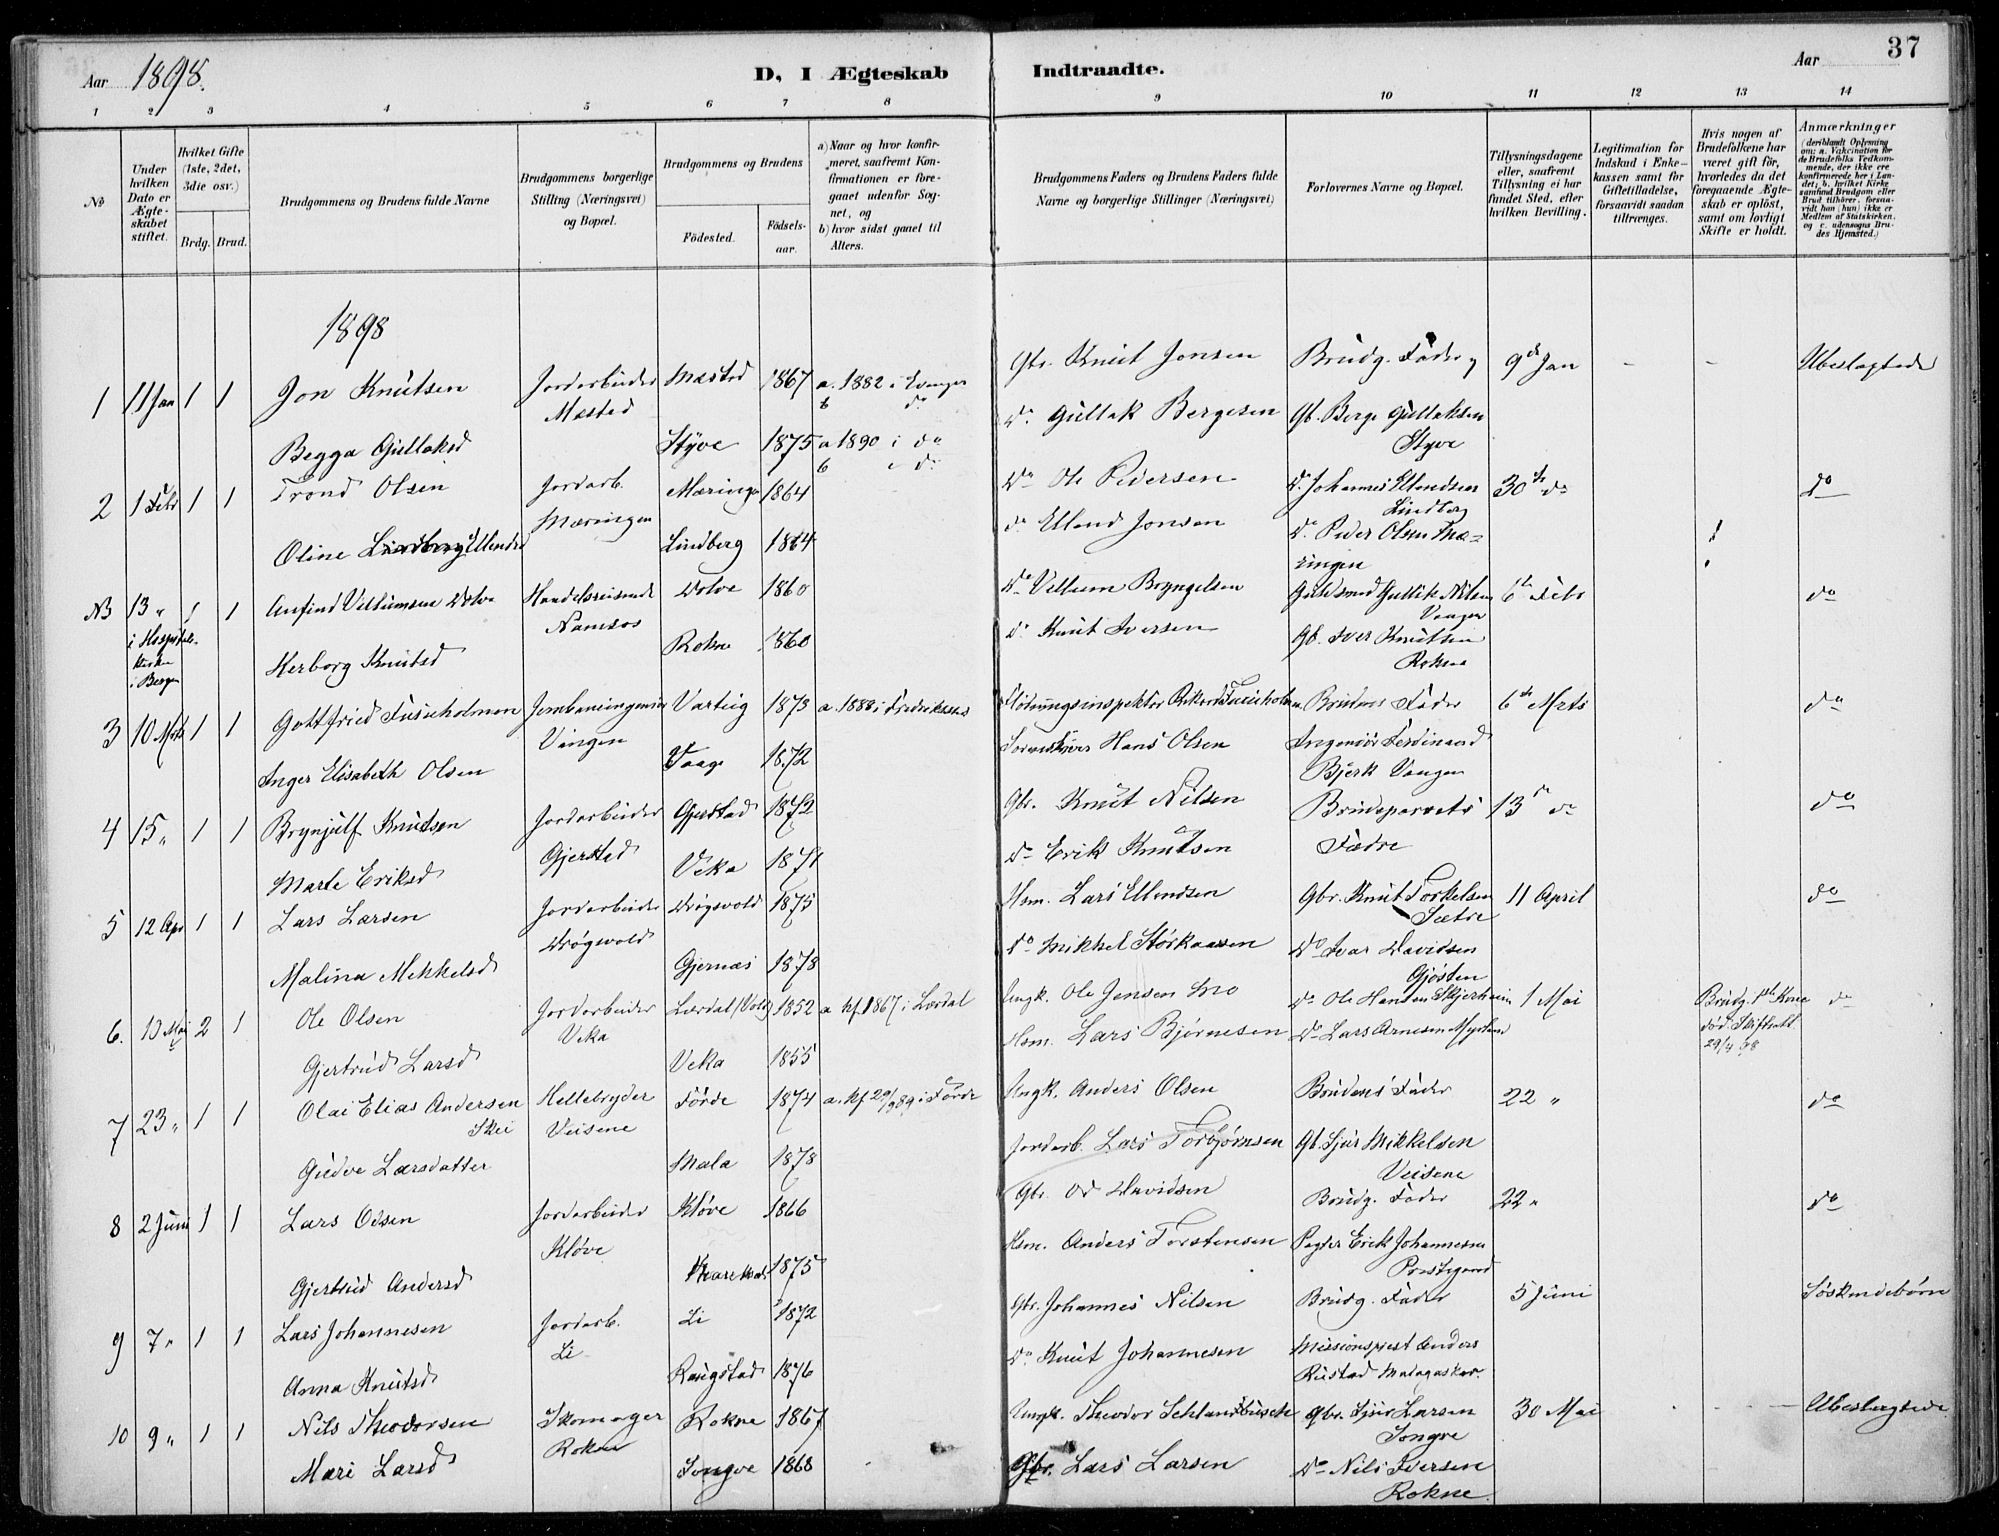 Aar 1898.
D, I Ægteskab Indtraadte.
Aar
37
1 2 3 4 5 6 7 8 9 10 11 12 13 14
No
Under hvilken Dato er Ægteskabet stiftet.
Hvilket Gifte (1ste, 2det, 3die osv.)
Brdg. Brud.
Brudgommens og Brudens fulde Navne
Brudgommens borgerlige Stilling (Næringsvei) og Bopæl.
Brudgommens og Brudens
Födested.
Födsels-aar.
a) Naar og hvor konfirmeret, saafremt Konfirmationen er foregaaet udenfor Sognet, og
b) hvor sidst gaaet til Alters.
Brudgommens Faders og Brudens Faders fulde Navne og borgerlige Stillinger (Næringsvei)
Forlovernes Navne og Bopæl.
Tillysningsdagene eller, saafremt Tillysning ei har fundet Sted, efter hvilken Bevilling.
Legitimation for Indskud i Enkekassen samt for Giftetilladelse, forsaavidt saadan tiltrænges.
Hvis nogen af Brudefolkene har været gift för, hvorledes da det foregaaende Ægteskab er oplöst, samt om lovligt Skifte er holdt.
Anmærkninger (deriblandt Oplysning om: a. Vakcination for de Brudefolks Vedkommende, der ikke ere konfirmerede her i Landet; b. hvilket Kirkesamfund Brudgom eller Brud tilhörer, forsaavidt han (hun) ikke er Medlem af Statskirken, og c. udensogns Brudes Hjemsted.)
1898
1 11 Jan 1 1 Jon Knutsen Jordarbeider Mæstad 1867 a. 1882 i Evanger Gbr. Knut Jonsen Brudg. Fader og 9de Jan - - Ubeslægtede
Mæstad b do
Begga Gullaksd Styve 1875 a 1890 i do do Gullak Bergesen Gb. Berge Gullaksen
b i do Styve
2 1 Febr 1 1 Trond Olsen Jordarb. Mæringen 1864 Do Ole Pedersen Do Johannes Ellendsen 30te do do
Mæringen Lindberg
Oline Lindberg Ellendsd Lindberg 1864 do Ellend Jonsen Do Peder Olsen Mæringen
N3 13 " 1 1 Anfind Vellumsen Dolve Handelsreisende Dolve 1860 Do Vellum Bryngelsen Guldsmed Gullik Nilsen 6te Febr do
i Hospitalskirken i Bergen Namsos Vangen
Herborg Knutsd Rokne 1860 Do Knut Iversen Gb. Iver Knutsen
Rokne
3 10 Mrts 1 1 Gottfried Furuholmen Jernbaneingeniør Varteig 1873 a. 1888 i Fredrikstad Flødningsinspektør Rikard Furuholmen Brudens Fader 6te Mrts do
Vangen
Inger Elisabeth Olsen Vaage 1872 Hans Olsen Ingeniør Ferdinand
Bjerk Vangen
4 15 " 1 1 Brynjulf Knutsen Jordarbeider Gjerstad 1872 Gbr. Knut Nilsen Brudeparrets 13de do do
Gjerstad Fædre
Marte Eriksd Veka 1871 Do Erik Knutsen
5 12 Apr 1 1 Lars Larsen Jordarbeider Drøgsvold 1875 Hsm. Lars Ellendsen Gbr. Knut Torkelsen 11 April do
Drøgsvold Sætre
Malina Mikkelsd Gjernæs 1878 Do Mikhel Størkaasen Do Ivar Davidsen
Gjøsten
6. 10 Mai 2 1 Ole Olsen Jordarbeider Lærdal (Vold) 1852 a kf. 1867 i Lærdal Ungk. Ole Jensen Mo Do Ole Hansen Skjerheim 1 Mai Brudg. 1ste Kone do
Veka død. Skifteatt.
Gjertrud Larsd Veka 1855 Hsm. Lars Bjørnesen Do Lars Arnesen 29/4 98
7 23 " 1 1 Olai Elias Andersen Hellebryder Førde 1874 a. kf 29/9 89 i Førde Ungk. Anders Olsen Brudens Fader 22 " do
Skei Veisene
Gudve Larsdatter Mala 1878 Jordarb. Lars Torbjørnsen Gb. Sjur Mikkelsen
Veisene
8 2 Juni 1 1 Lars Odsen Jordarbeider Kløve 1866 Gbr. Od Davidsen Brudg. Fader 22 " do
Kløve
Gjertrud Andersd 1875 Hsm. Anders Torstensen Pagter Erik Johannesen
Prestegaard
9 7 " 1 1 Lars Johannesen Jordarb. Li 1872 Gbr. Johannes Nilsen Brudg. Fader 5 Juni Søskendebørn
Li
Anna Knutsd Raugstad 1876 Do Knut Johannesen Missionsprest Anders
Rustad Madagaskar.
10 9 " 1 1 Nils Theodorsen Skomager Rokne 1867 Ungk. Theodor Schlandbusch Gbr. Sjur Larsen 30 Mai - - - Ubeslægtede
Rokne Songve
Mari Larsd Songve 1868 Gbr. Lars Larsen Do Nils Iversen
Rokne.